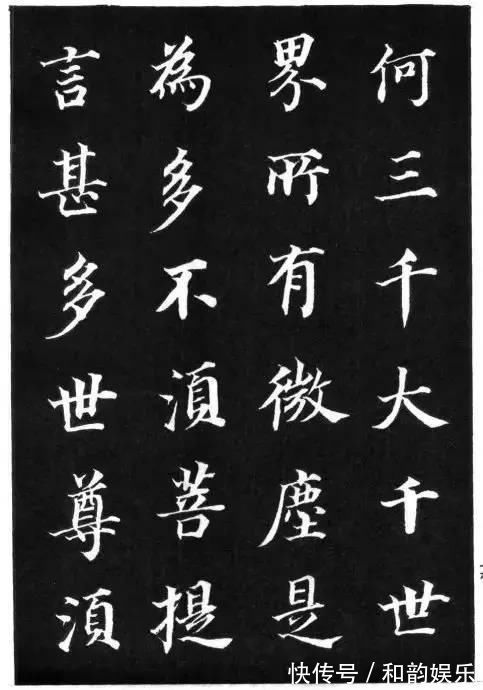 何三千大千世
界所有微塵是
為多不湏菩提
言甚多世尊湏
快传号/和韵娱乐